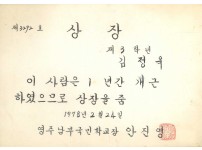 제3272호
상장
제3학년
김정욱
이 사람은 1년간 개근
하였으므로 상장을 줌
1978년 2월 24일
영주남부국민학교장 안진영